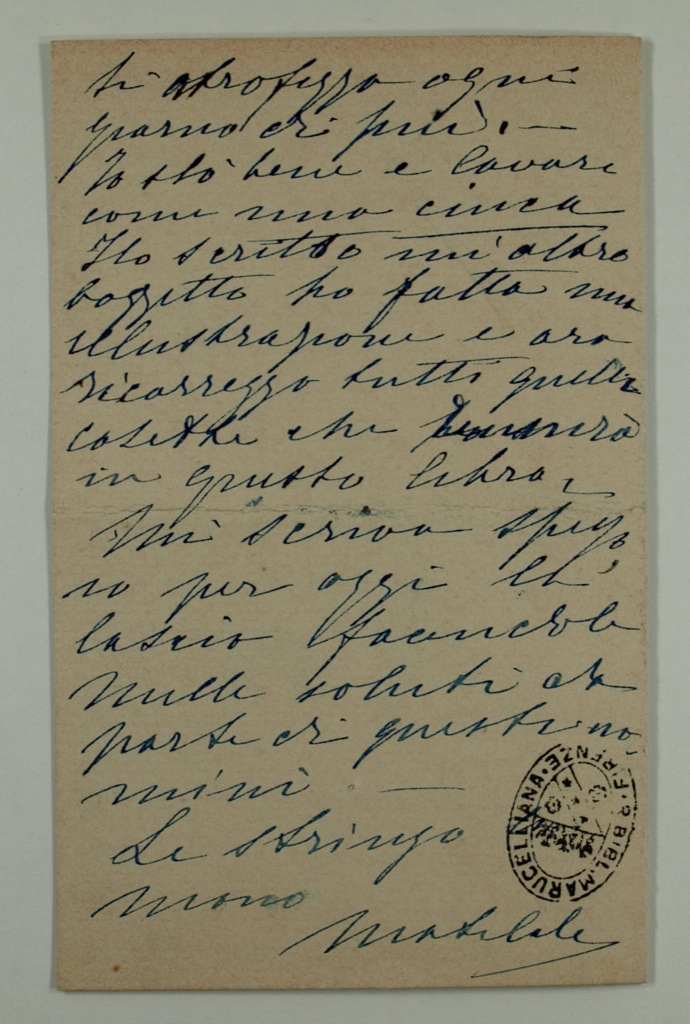 ti atrofizza ogni
giorno di più. —
Io stò bene e lavoro
come una ciuca
Ho scritto un'altro
bozzetto ho fatta una
illustrazione e ora
ricorreggo tutti quelle
cosette che
in questo libro,
Mi scriva spesso
io per oggi la
lascio facendole
mille saluti da
parte di questi uo
mini —
Le stringo
mano
Matilde
R. BIBL. MARUCELLIANA · FIRENZE ·